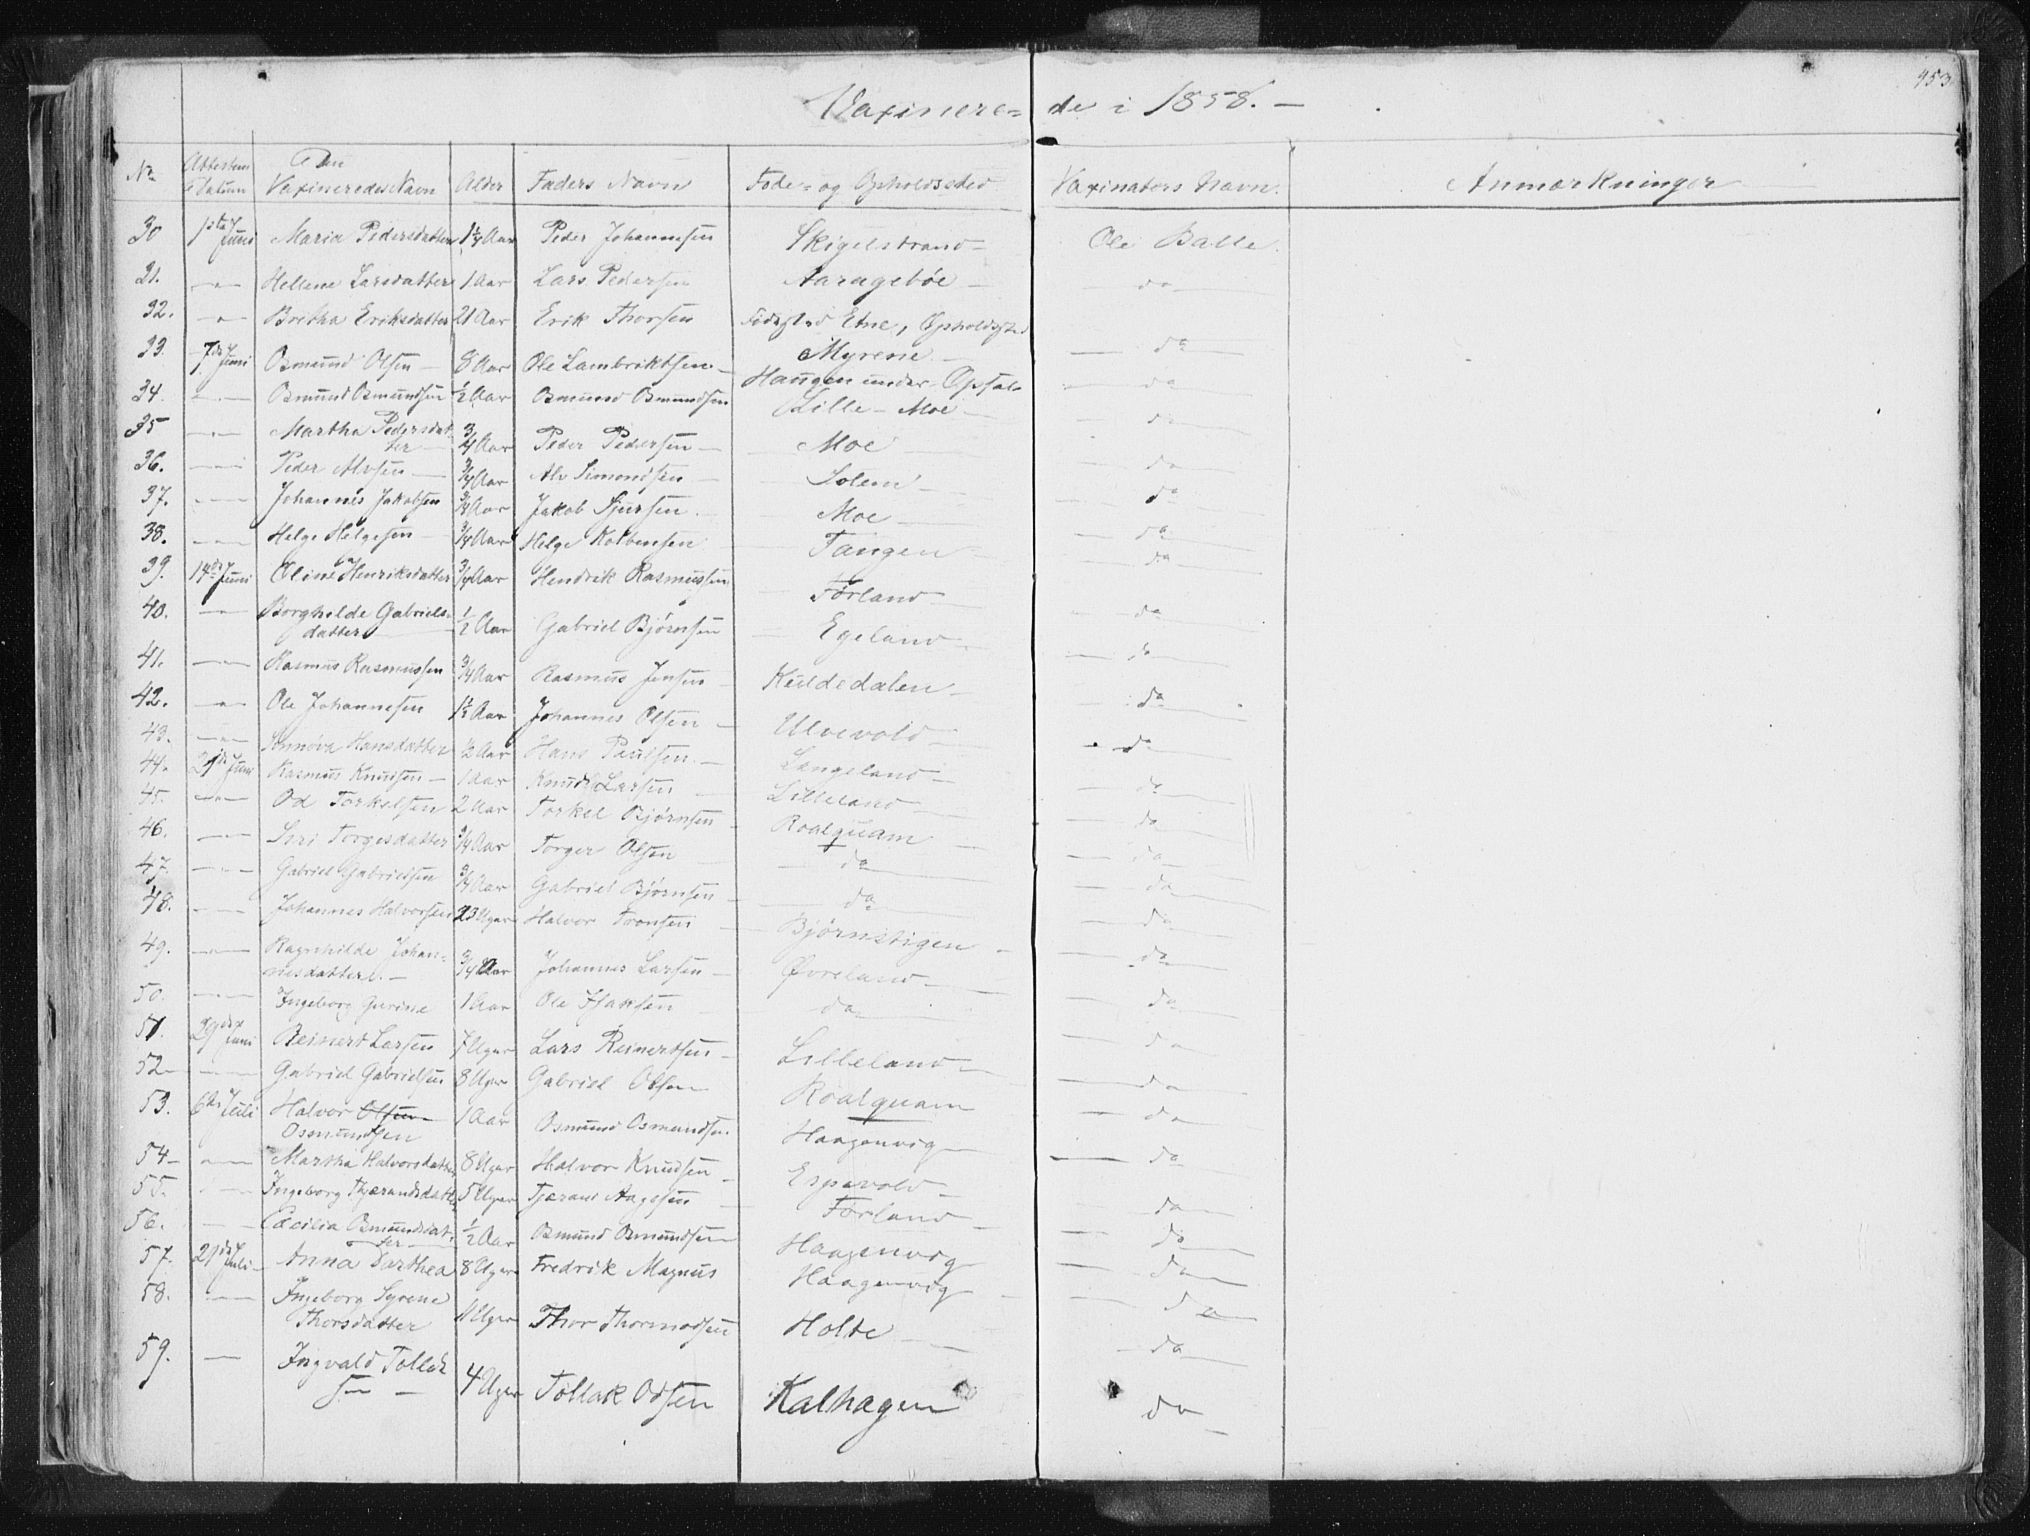 453
Vaxinere= de i 1858. —
No Attestens Datum Den Vaxineredes Navn Alder Faders Navn Føde= og Opholdssted Vaxinators Navn. Anmærkninger
30 1ste Juni Maria Pedersdatter 1 1/4 Aar Peder Johannesen Skigelstrand — Ole Balle
31. — " — Hellene Larsdatter 1 Aar Lars Pedersen Aaragebøe — do
32. — " — Brethe Eriksdatter 21 Aar Erik Thorsen Fødested Etne, Opholdssted
33. 7de Juni Osmund Olsen — 8 Aar Ole Lambriktsen — Myrene — do
34. — " — Osmund Osmundsen 1/2 Aar Osmund Osmundsen Haugen under Opsal do
Lille - Moe —
35 — " — Martha Pedersdat- 3/4 Aar Peder Pedersen — Moe do
ter
36. — " — Peder Alvsen — 3/4 Aar Alv Simondsen — Solem — do
37. — " — Johannes Jakobsen 3/4 Aar Jakob Sjursen. — Moe — do
38. — " — Helge Helgesen — 3/4 Aar Helge Kolbensen Tangen — do
39. 14de Juni Oline Henriksdatter 3/4 Aar Hendrik Rasmussen Førland — do
40. — " — Borghilde Gabriels- 1/2 Aar Gabriel Bjørnsen Egeland — do
datter
41. — " — Rasmus Rasmussen 3/4 Aar Rasmus Jensen — Kuldedalen — do
42. — " — Ole Johannesen 1 1/2 Aar Johannes Olsen — Ulvevold — do
43. — " — Sønnøva Hansdatter 1/2 Aar Hans Paulsen. — Langeland — do
44. 21de Juni Rasmus Knudsen — 1 Aar Knud Larsen — Lilleland — do
45. — " — Od Torkelsen 2 Aar Torkel Bjørnsen — Roalquam — do
46. — " — Siri Torgesdatter 3/4 Aar Torger Olsen — do — do
47. — " — Gabriel Gabrielsen 3/4 Aar Gabriel Bjørnsen — do — do
48. — " — Johannes Halvorsen 23 Uger Halvor Tronsen — Bjørnstigen — do
49. — " — Ragnhilde Johan- 3/4 Aar Johannes Larsen — Øvreland — do
nesdatter. —
50. — " — Ingeborg Gurine 1 Aar Ole Isaksen — do — do
51. 29de Juni Reinert Larsen 7 Uger Lars Reinertsen — Lilleland — do
52 — — " — Gabriel Gabrielsen 8 Uger Gabriel Olsen Roalquam — do
53. 6te Juli Halvor Olsen 1 Aar Osmund Osmundsen Haagenvig — do
Osmundsen
54 — — " — Martha Halvorsdatter 8 Uger Halvor Knudsen — Espevold — do
55. — " — Ingeborg Thjerandsdatter 5 Uger Tjerand Aagesen — Førland — do
56. — " — Cæcilia Osmundsdat- 1/2 Aar Osmund Osmundsen Haagenvig do
ter
57. 21de Juli — Anna Darthea 8 Uger Fredrik Magnus Haagenvig — do
58. — " — Ingeborg Syrene Uger Thor Thormodsen Holte — do
Thorsdatter
59. — Ingvald Tollak 4 Uger Tollak Odsen Kalhagen do
sen —